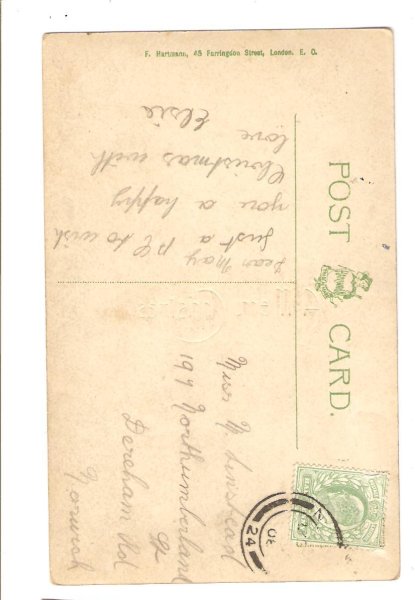 F. Hartmann, 45 Farringdon Street, London. E. C.
POST CARD.
Dear May
Just a PC to wish
you a happy
Christmas with
love Elsie
Miss M. Linstead
197 Northumberland
St
Dereham Rd
Norwich
24